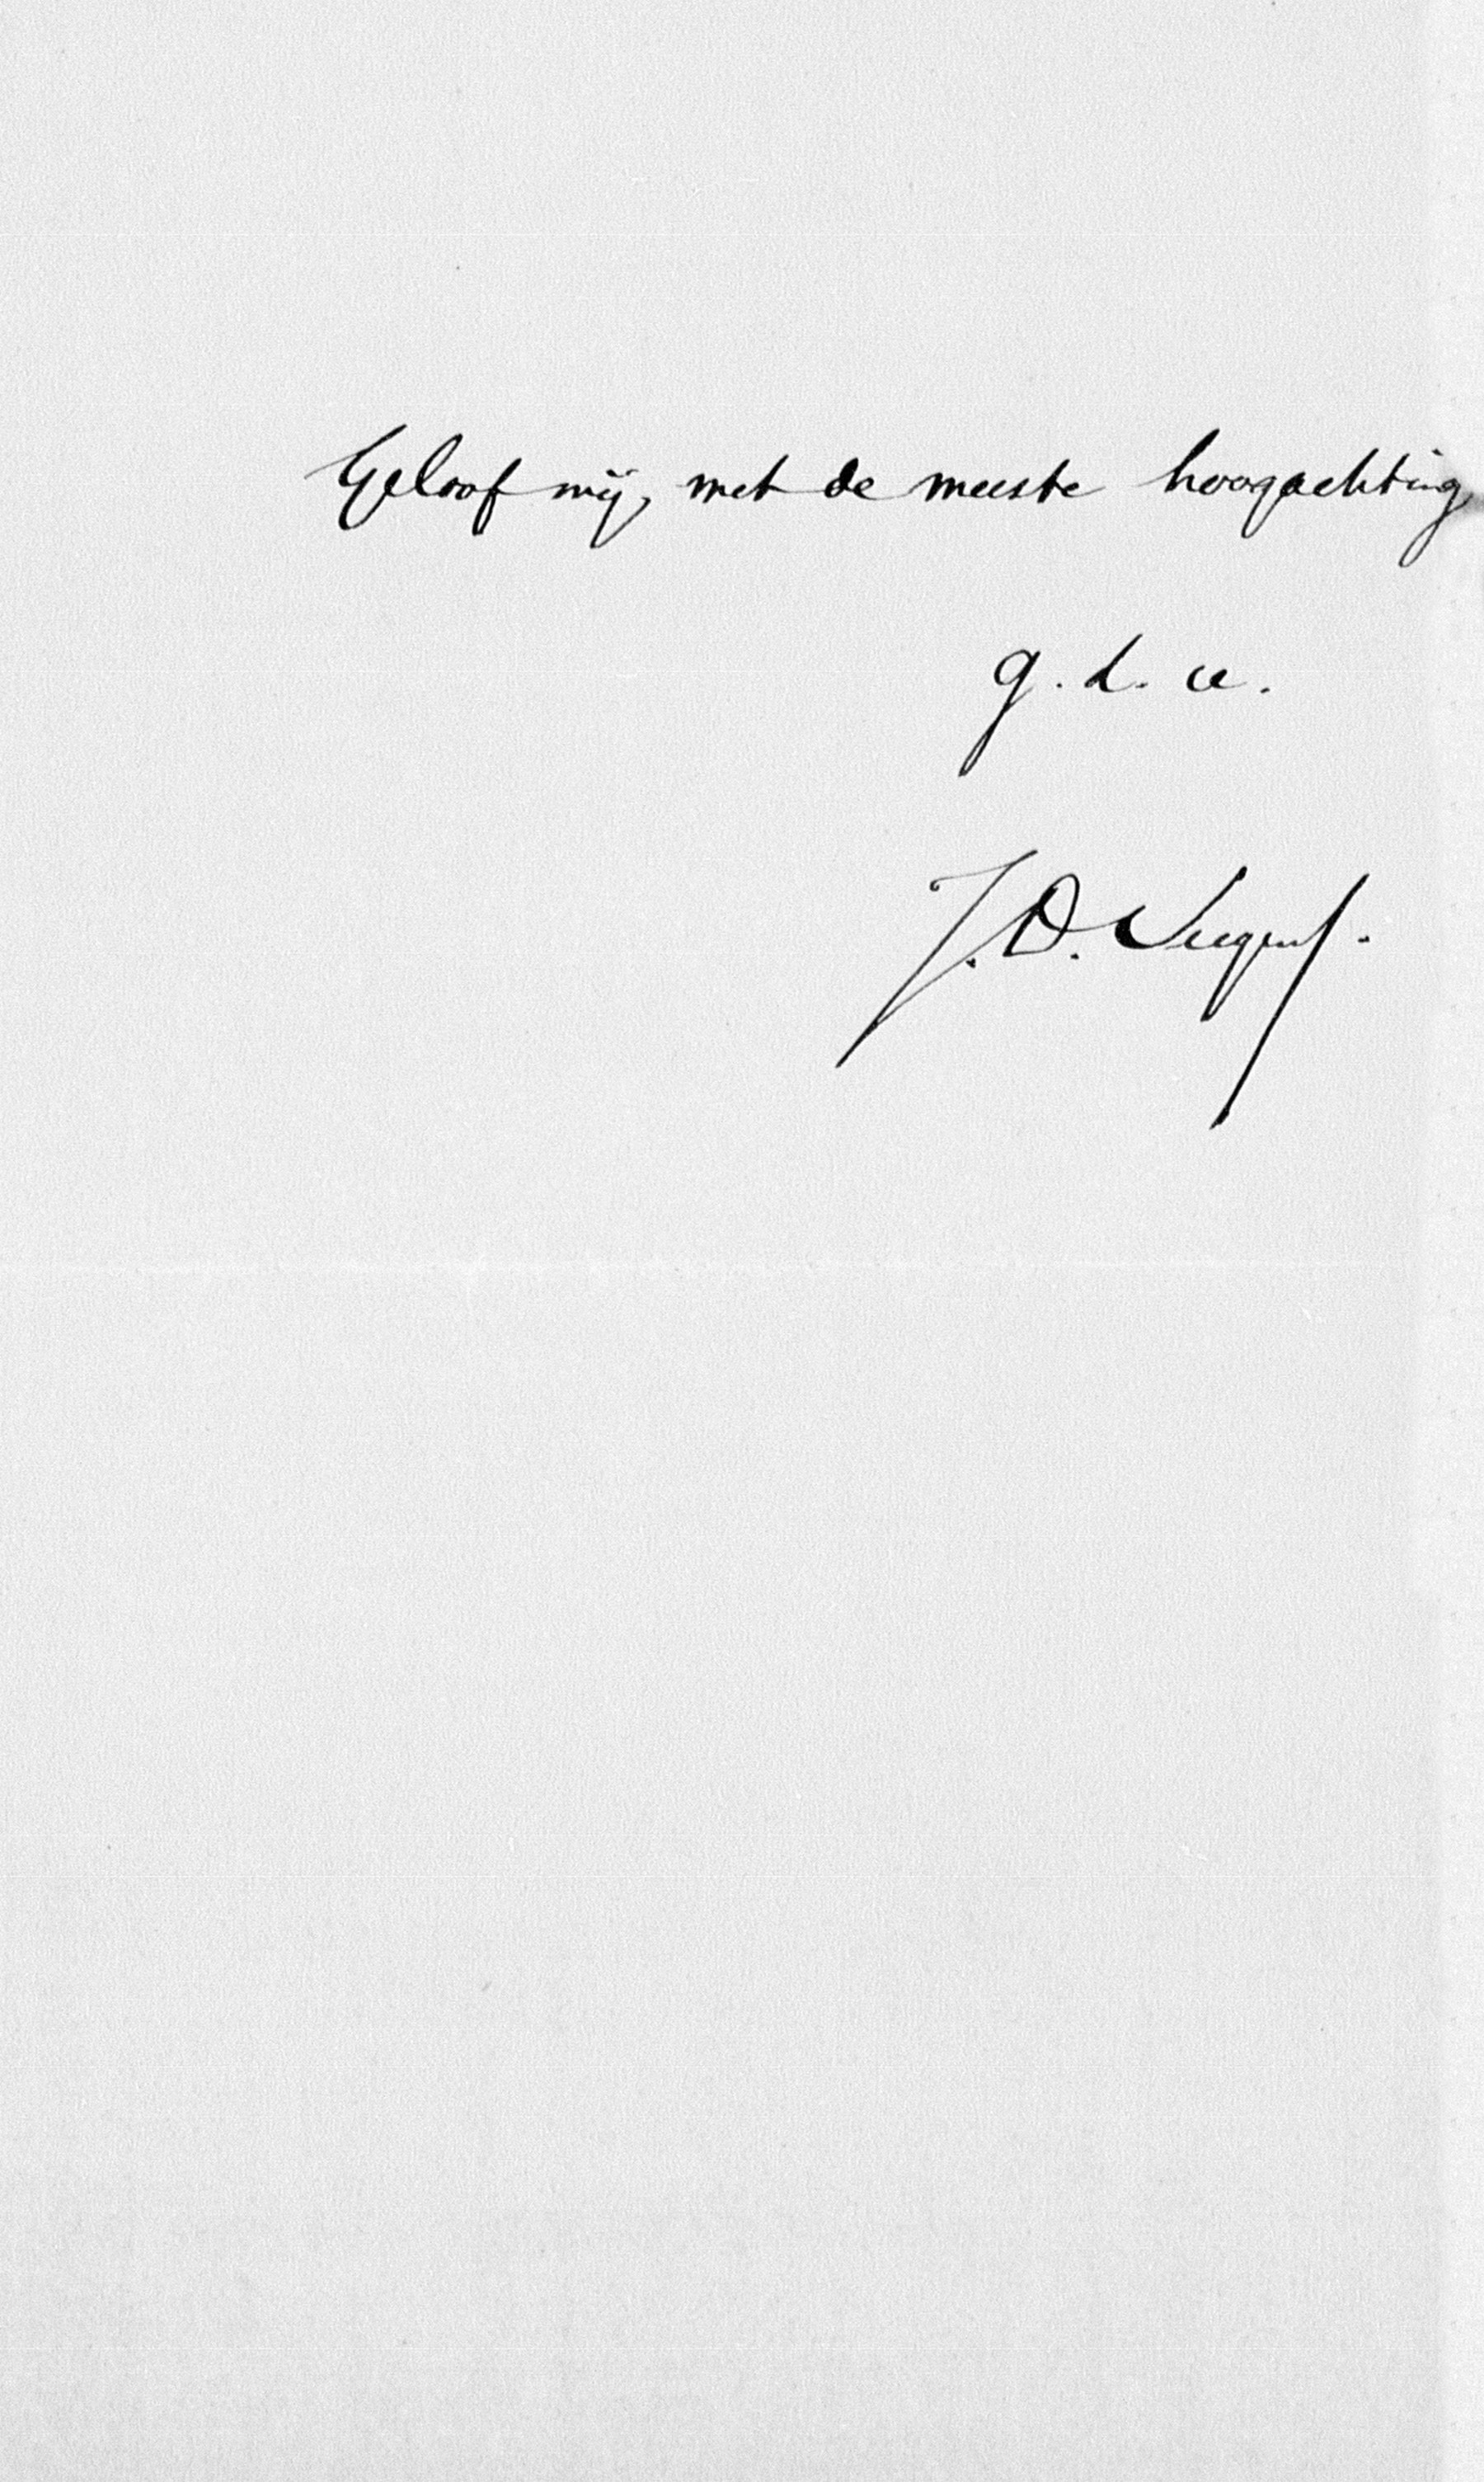 Geloof mij, met de meeste hoogachting,
g. d. u.
J. D.